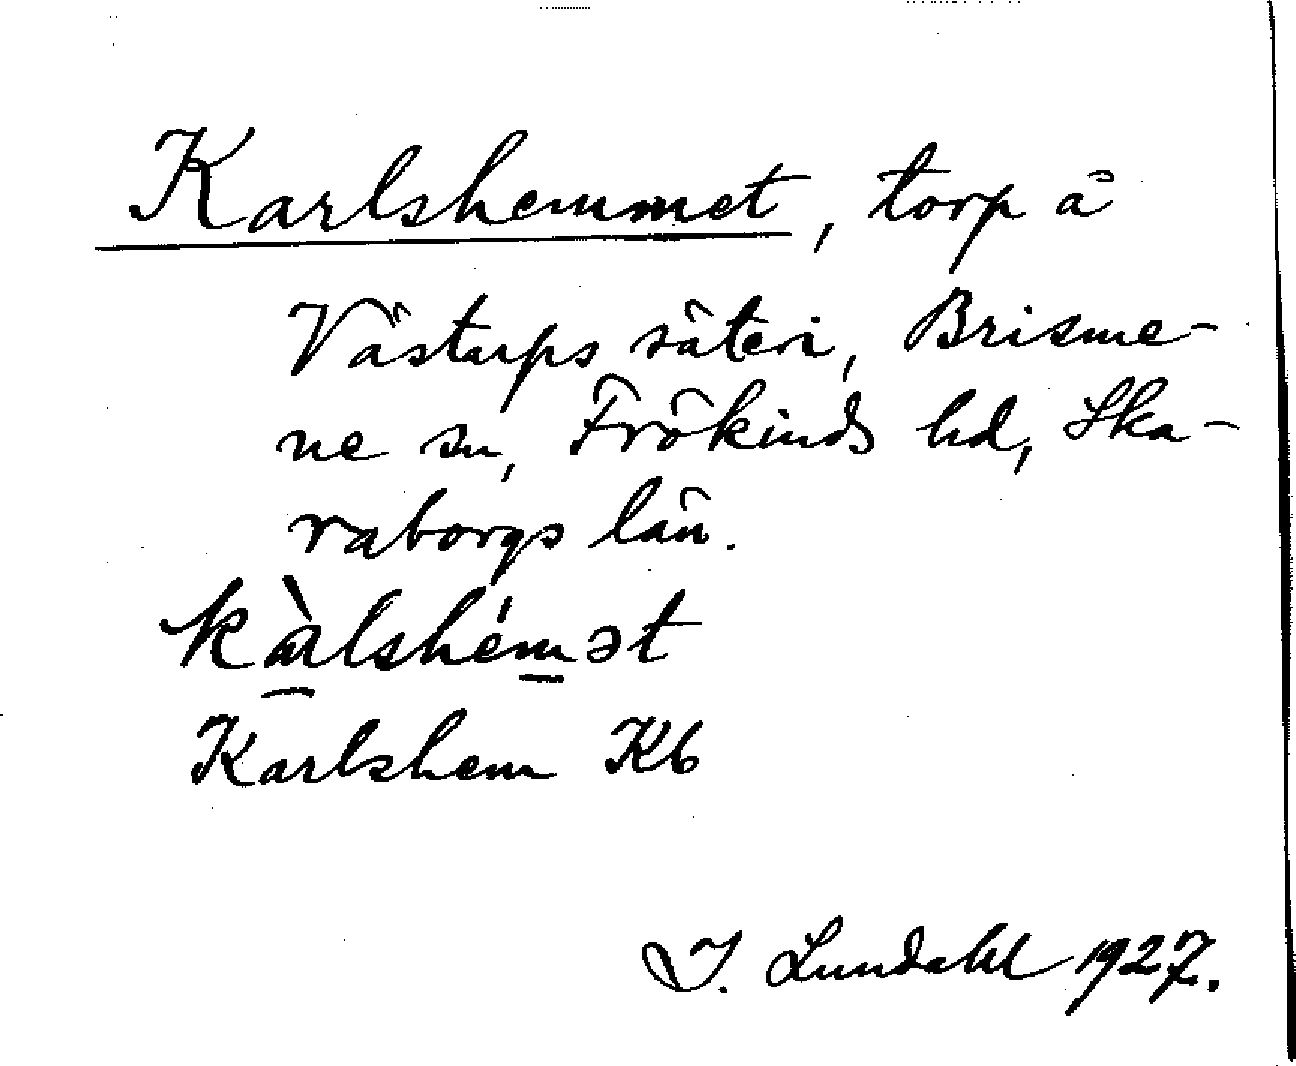 Karlshemmet, torp å
Västarps säteri, Brisme-
ne sn, Frökinds hd, Ska-
raborgs län.
kàlshémət
Karlshem Kb
I. Lundahl 1927.